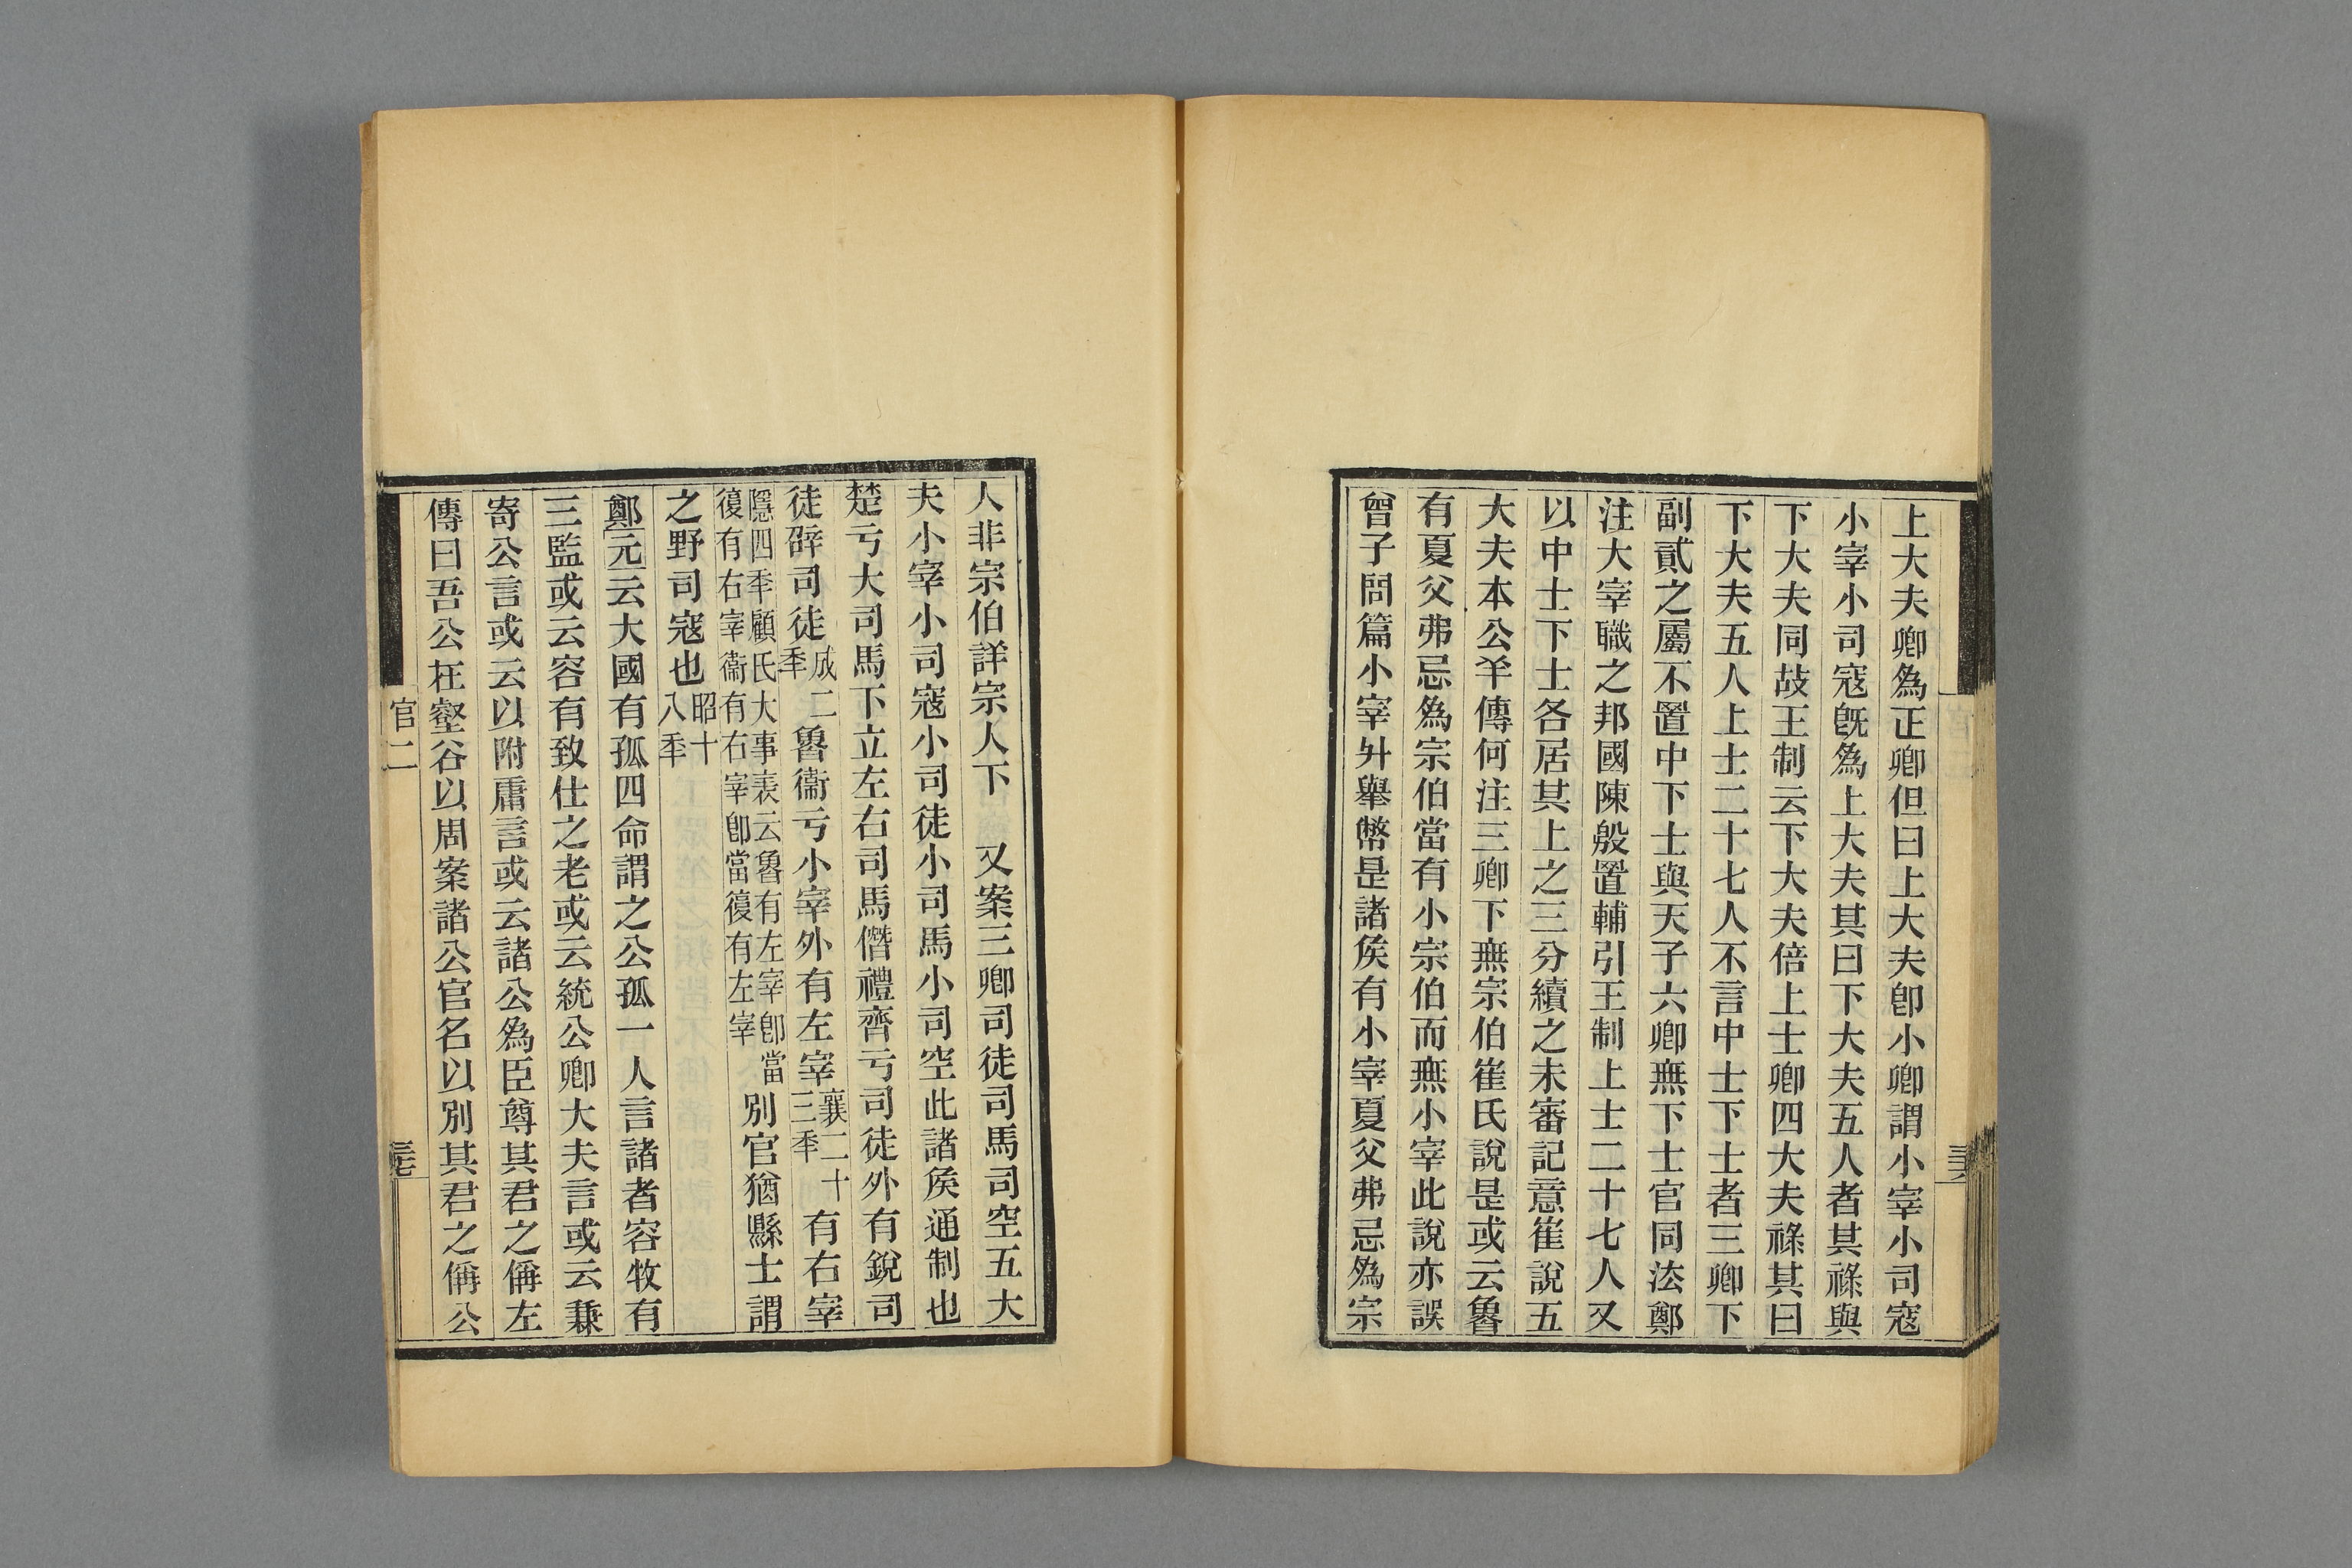 上大夫卿爲正卿但曰上大夫卽小卿謂小宰小司寇
小宰小司寇旣爲上大夫其曰下大夫五人者其祿與
下大夫同故王制云下大夫倍上士卿四大夫祿其曰
下大夫五人上士二十七人不言中士下士者三卿下
副貳之屬不置中下士與天子六卿無下士官同法鄭
注大宰職之邦國陳殷置輔引王制上士二十七人又
以中士下士各居其上之三分續之未審記意崔說五
大夫本公羊傳何注三卿下無宗伯崔氏說是或云魯
有夏父弗忌爲宗伯當有小宗伯而無小宰此說亦誤
曾子問篇小宰升舉幣是諸侯有小宰夏父弗忌爲宗
人非宗伯詳宗人下　又案三卿司徒司馬司空五大
夫小宰小司寇小司徒小司馬小司空此諸侯通制也
楚亏大司馬下立左右司馬僭禮齊亏司徒外有銳司
徒辟司徒成二秊魯衞亏小宰外有左宰襄二十三秊有右宰
隱四秊顧氏大事表云魯有左宰卽當復有右宰衞有右宰卽當復有左宰別官猶縣士謂
之野司寇也昭十八秊
鄭元云大國有孤四命謂之公孤一人言諸者容牧有
三監或云容有致仕之老或云統公卿大夫言或云兼
寄公言或云以附庸言或云諸公爲臣尊其君之偁左
傳曰吾公在壑谷以周案諸公官名以別其君之偁公
官二
三七